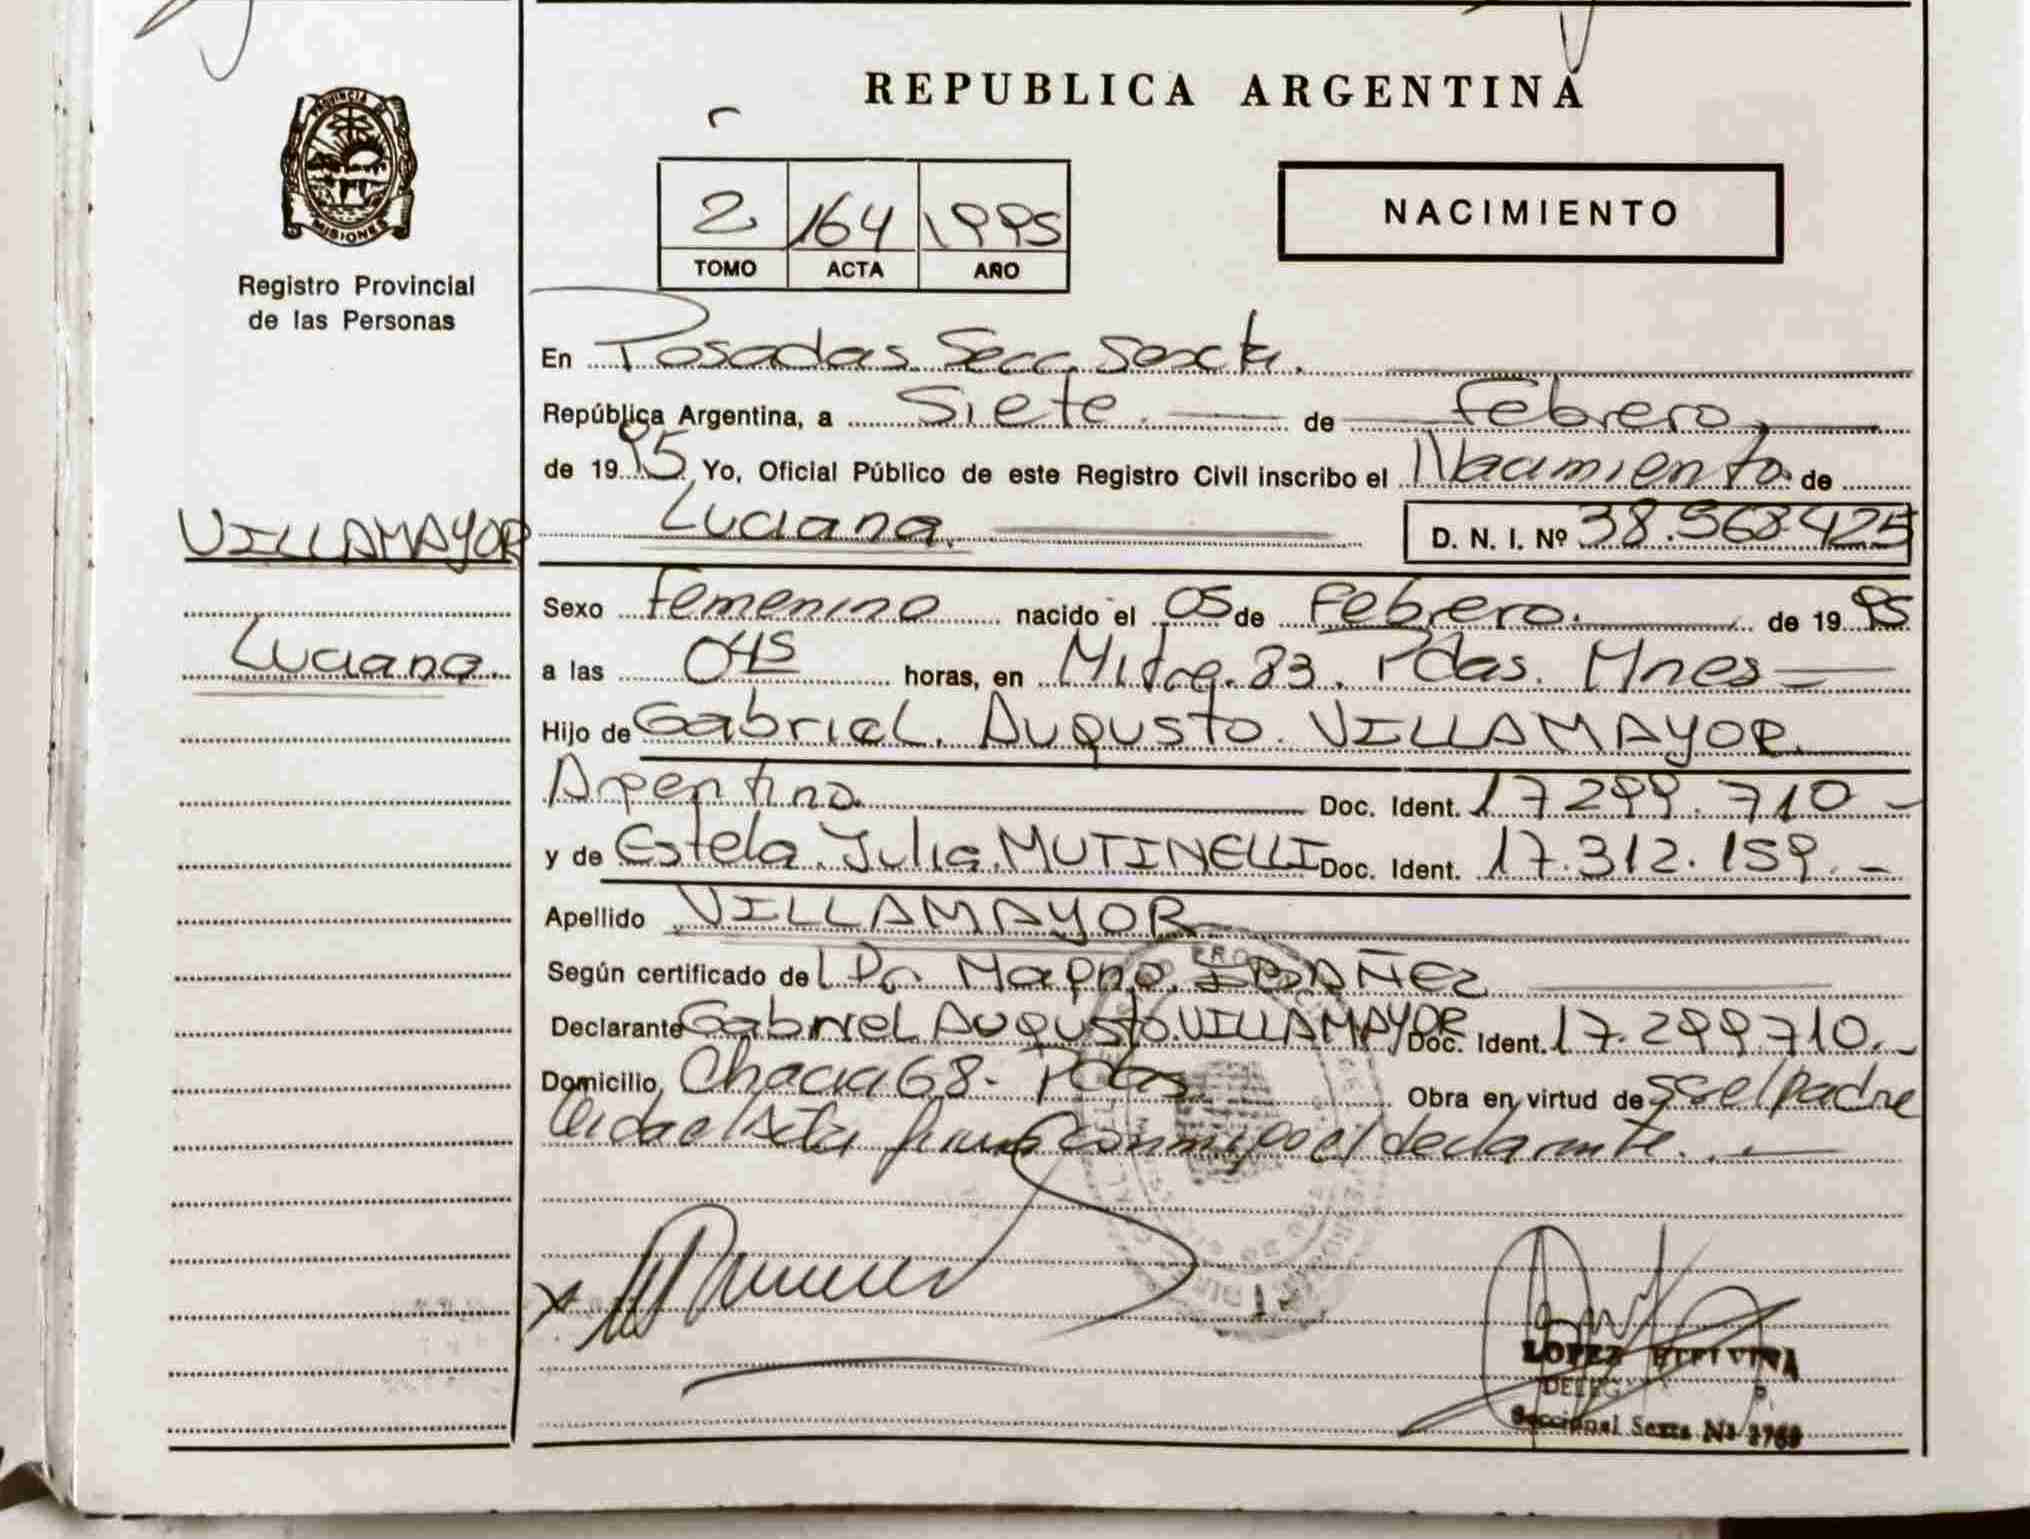 PROVINCIA DE
MISIONES
Registro Provincial
de las Personas
VILLAMAYOR
Luciana.
REPUBLICA ARGENTINA
2 164 1995
TOMO ACTA AÑO
NACIMIENTO
En Posadas. Secc. Sexta.
República Argentina, a Siete. de Febrero
de 1995 Yo, Oficial Público de este Registro Civil inscribo el Nacimiento de
Luciana. D. N. I. Nº 38.568.425
Sexo Femenino nacido el 05 de Febrero. de 1995
a las 045 horas, en Mitre. 83. Pdas. Mnes
Hijo de Gabriel. Augusto. VILLAMAYOR.
Argentino Doc. Ident. 17.299.710.-
y de Estela. Julia. MUTINELLI Doc. Ident. 17.312.159.-
Apellido VILLAMAYOR
Según certificado de Dr. Magno. IBAÑEZ
Declarante Gabriel Augusto. VILLAMAYOR Doc. Ident. 17.299.710.-
Domicilio Chacra 68. Pdas. Obra en virtud de ser el padre
Leida el Acta firma conmigo el declarante.
X
LOPEZ
DELEG
Seccional Sexta Nº